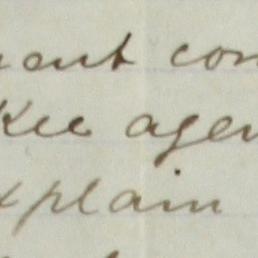 ment con
Kee agen
xplain